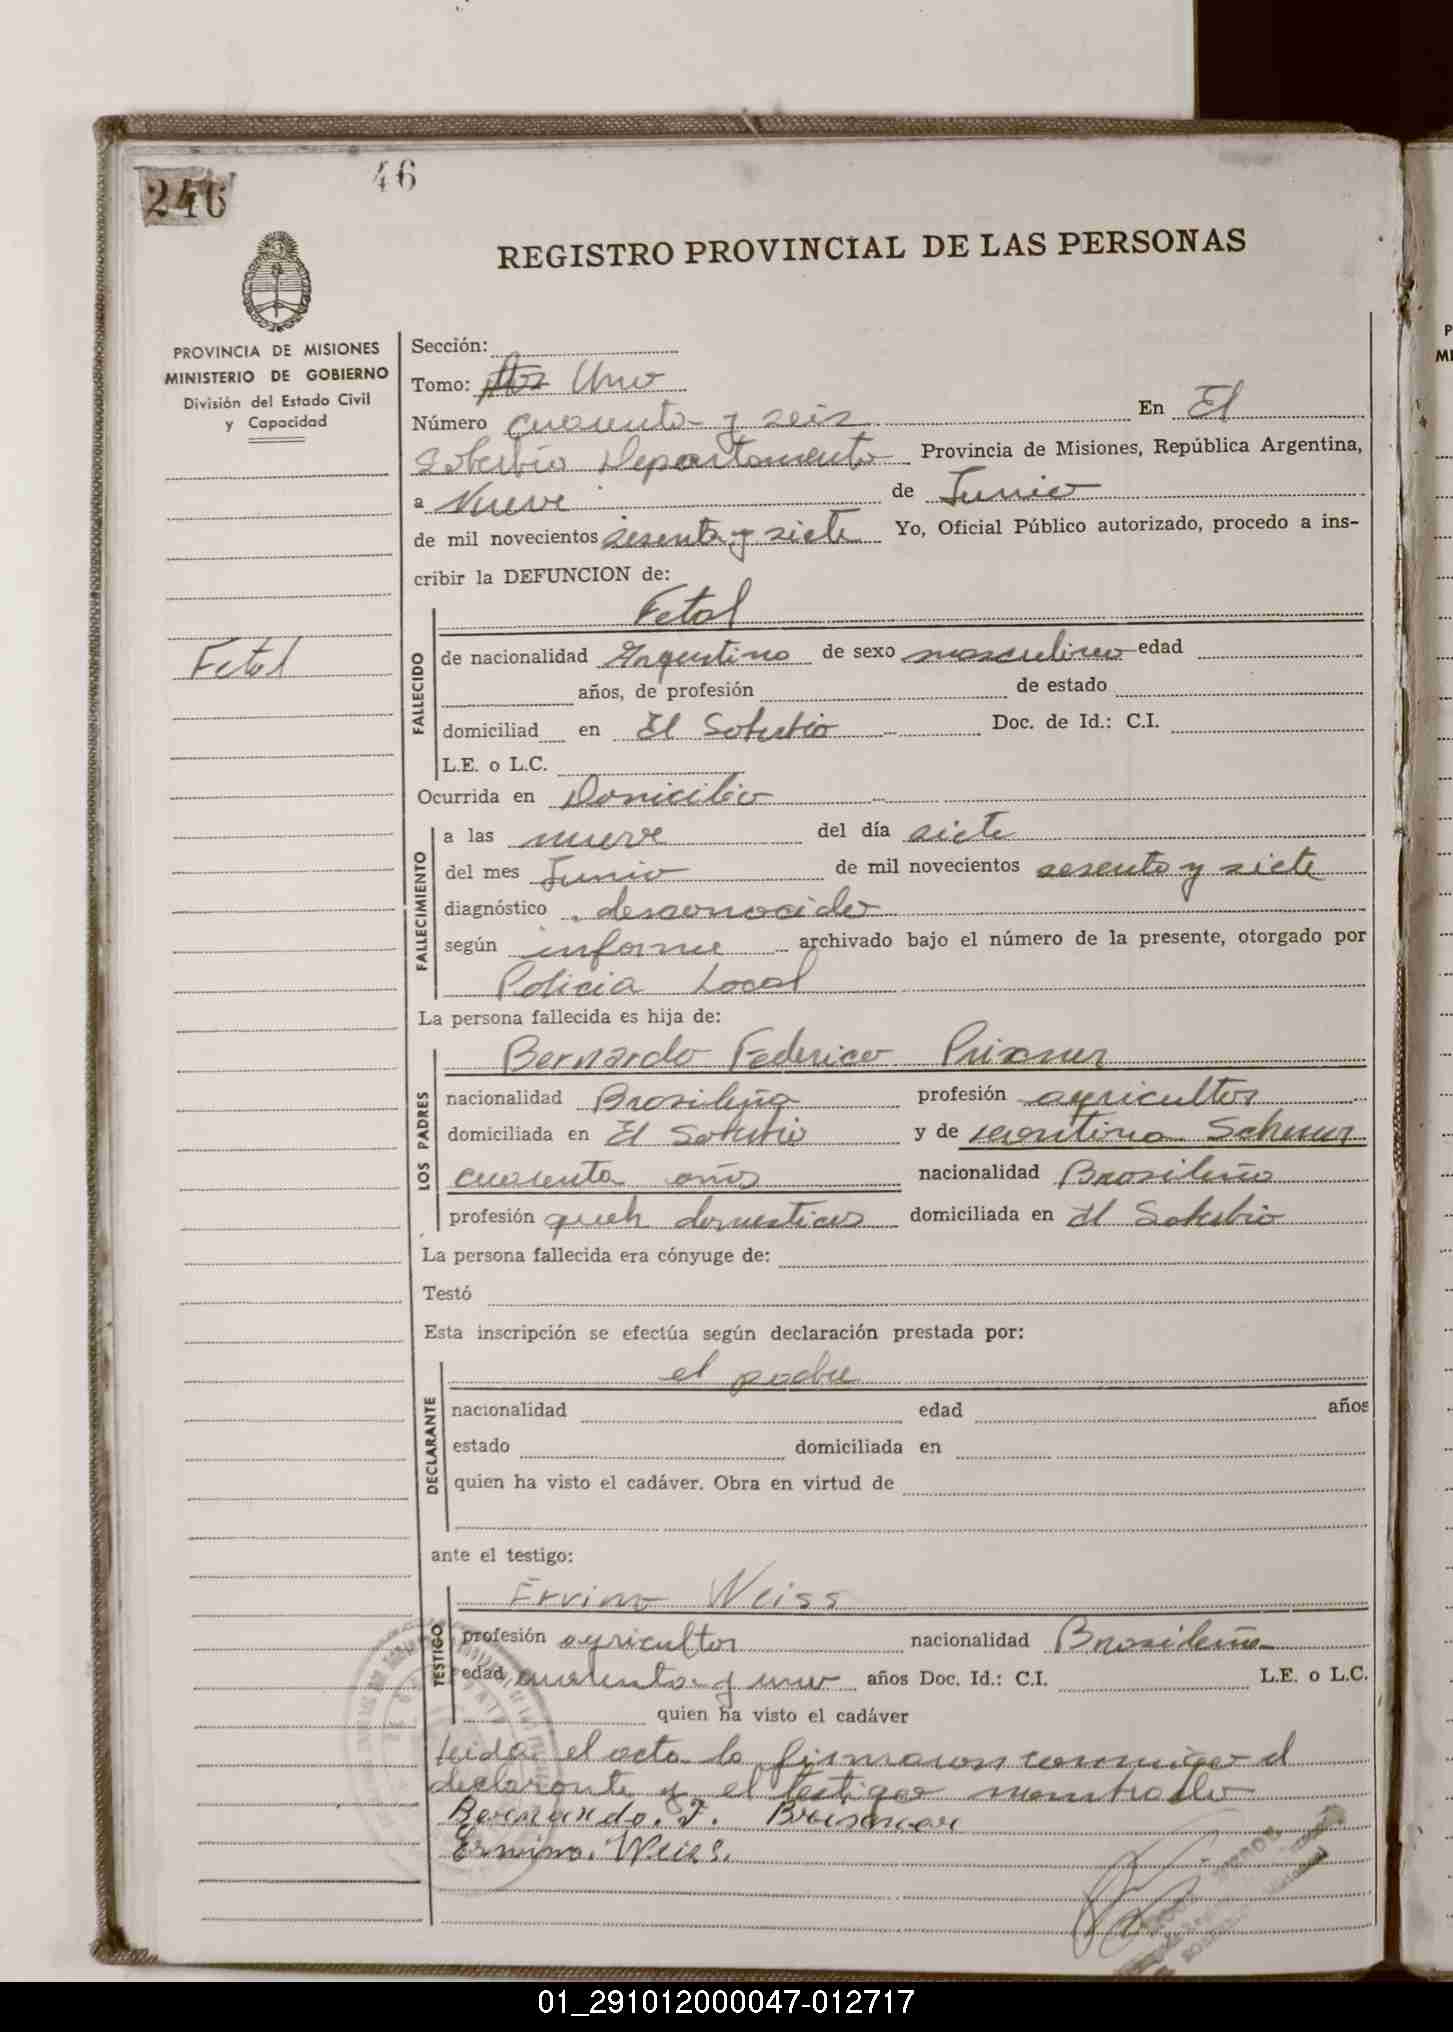 246
46
REGISTRO PROVINCIAL DE LAS PERSONAS
PROVINCIA DE MISIONES
MINISTERIO DE GOBIERNO
División del Estado Civil
y Capacidad
Fetal
Sección:
Tomo: Uno
Número cuarenta y seis En El
Soberbio Departamento Provincia de Misiones, República Argentina,
a Nueve de Junio
de mil novecientos sesenta y siete Yo, Oficial Público autorizado, procedo a ins-
cribir la DEFUNCION de:
Fetal
FALLECIDO
de nacionalidad Argentino de sexo masculino edad
años, de profesión de estado
domiciliad en El Soberbio Doc. de Id.: C.I.
L.E. o L.C.
Ocurrida en Domicilio
FALLECIMIENTO
a las nueve del día siete
del mes Junio de mil novecientos sesenta y siete
diagnóstico desconocido
según informe archivado bajo el número de la presente, otorgado por
Policia Local
La persona fallecida es hija de:
LOS PADRES
Bernardo Federico
nacionalidad Brasileña profesión agricultor
domiciliada en El Soberbio y de
cuarenta años nacionalidad Brasileña
profesión domesticos domiciliada en El Soberbio
La persona fallecida era cónyuge de:
Testó
Esta inscripción se efectúa según declaración prestada por:
DECLARANTE
el padre
nacionalidad edad años
estado domiciliada en
quien ha visto el cadáver. Obra en virtud de
ante el testigo:
TESTIGO
Ervino Weiss
profesión agricultor nacionalidad Brasileña
edad cuarenta y uno años Doc. Id.: C.I. L.E. o L.C.
quien ha visto el cadáver
Leida el acta la firmaron conmigo el
declarante y el testigo
Bernardo. F.
Ervino. Weiss.
01_291012000047-012717